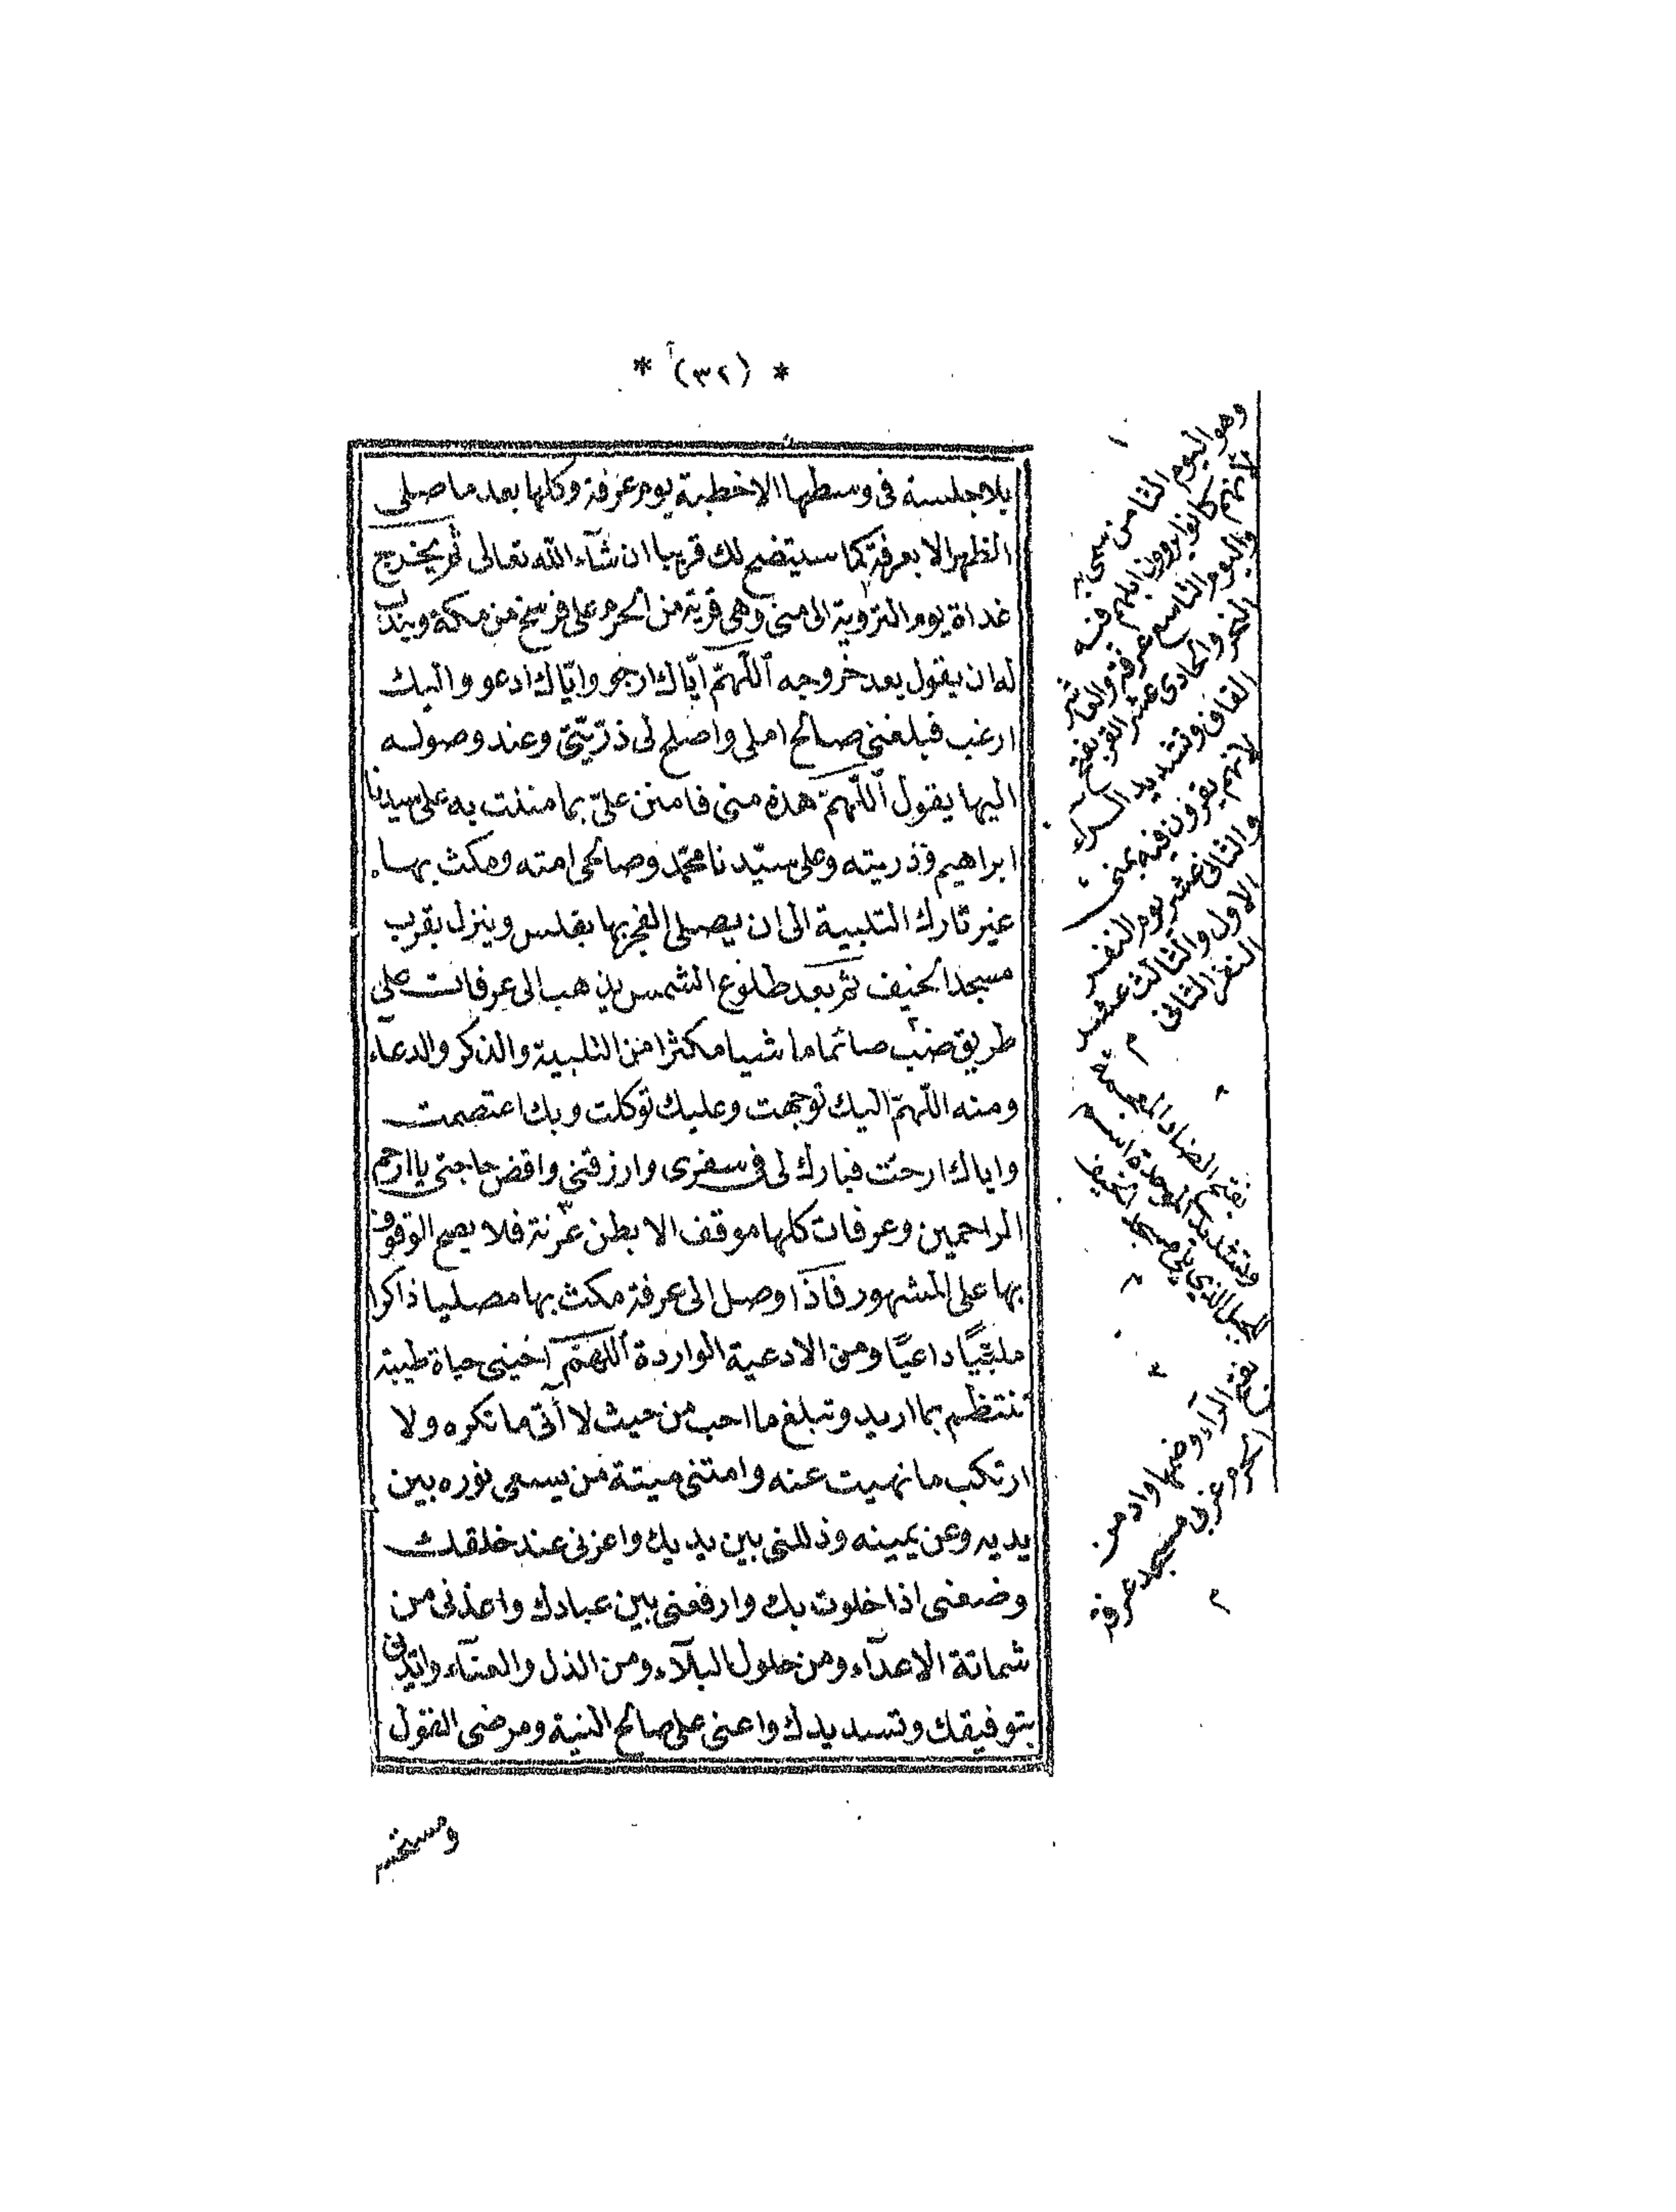 * (٣٢) *
بلا جلسة فى وسطها الا خطبة يوم عرفة وكلها بعد ما صلى
الظهر الا بعرفة كما سيتضح لك قريبا ان شآء الله تعالى ثم يخرج
غداة يوم التروية الى منى وهى قرية من الحرم على فرسخ من مكة ويندب
له ان يقول بعد خروجه اللّهمّ ايّاك ارجو وايّاك ادعو واليك
ارغب فبلغنى صالح املى واصلح لى ذرّيّتى وعند وصوله
اليها يقول اللّهمّ هذه منى فامنن علىّ بما مننت به على سيدنا
ابراهيم وذريته وعلى سيّدنا محمّد وصالحى امته ومكث بها
غير تارك التلبية الى ان يصلى الفجر بها بغلس وينزل بقرب
مسجد الخيف ثم بعد طلوع الشمس يذهب الى عرفات على
طريق ضب صائما ماشيا مكثرا من التلبية والذكر والدعآء
ومنه اللّهمّ اليك توجهت وعليك توكلت وبك اعتصمت
واياك اردت فبارك لى فى سفرى وارزقنى واقض حاجتى يا ارحم
الراحمين وعرفات كلها موقف الا بطن عرنة فلا يصح الوقوف
بها على المشهور فاذا وصل الى عرفة مكث بها مصليا ذاكرا
ملبّيًا داعيًا ومن الادعية الواردة اللهمّ احينى حياة طيبة
تنتظم بما اريد وتبلغ ما احب من حيث لا أتى ما تكره ولا
ارتكب ما نهيت عنه وامتنى ميتة من يسعى نوره بين
يديه وعن يمينه وذللنى بين يديك واعزنى عند خلقك
وضعنى اذا خلوت بك وارفعنى بين عبادك واعذنى من
شماتة الاعدآء ومن حلول البلآء ومن الذل والعنآء وايدنى
بتوفيقك وتسديدك واعنى على صالح النية ومرضى القول
ومستحسن
١
وهو اليوم الثامن سمى به
لأنهم كانوا يروون ابلهم فيه
واليوم التاسع عرفة والعاشر
النحر والحادى عشر القر بفتح
القاف وتشديد الراء
لانهم يقرون فيه بمنى
والثانى عشر يوم النفر
الاول والثالث عشر
النفر الثانى م
٢
بفتح الضاد المعجمة
وتشديد الموحدة اسم
للجبل الذي يلى مسجد الخيف
م
٣
بفتح الرآء وضمها واد من
الحرم غربى مسجد عرفة
م